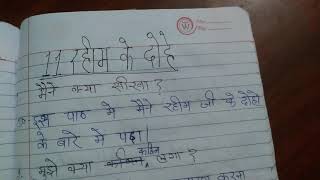 11 रहीम के दोहे
मैने क्या सीखा?
इस पाठ मे मैने रहीम जी के दोहो
के बारे मे पढा।
मुझे क्या कठिन लगा?
करना